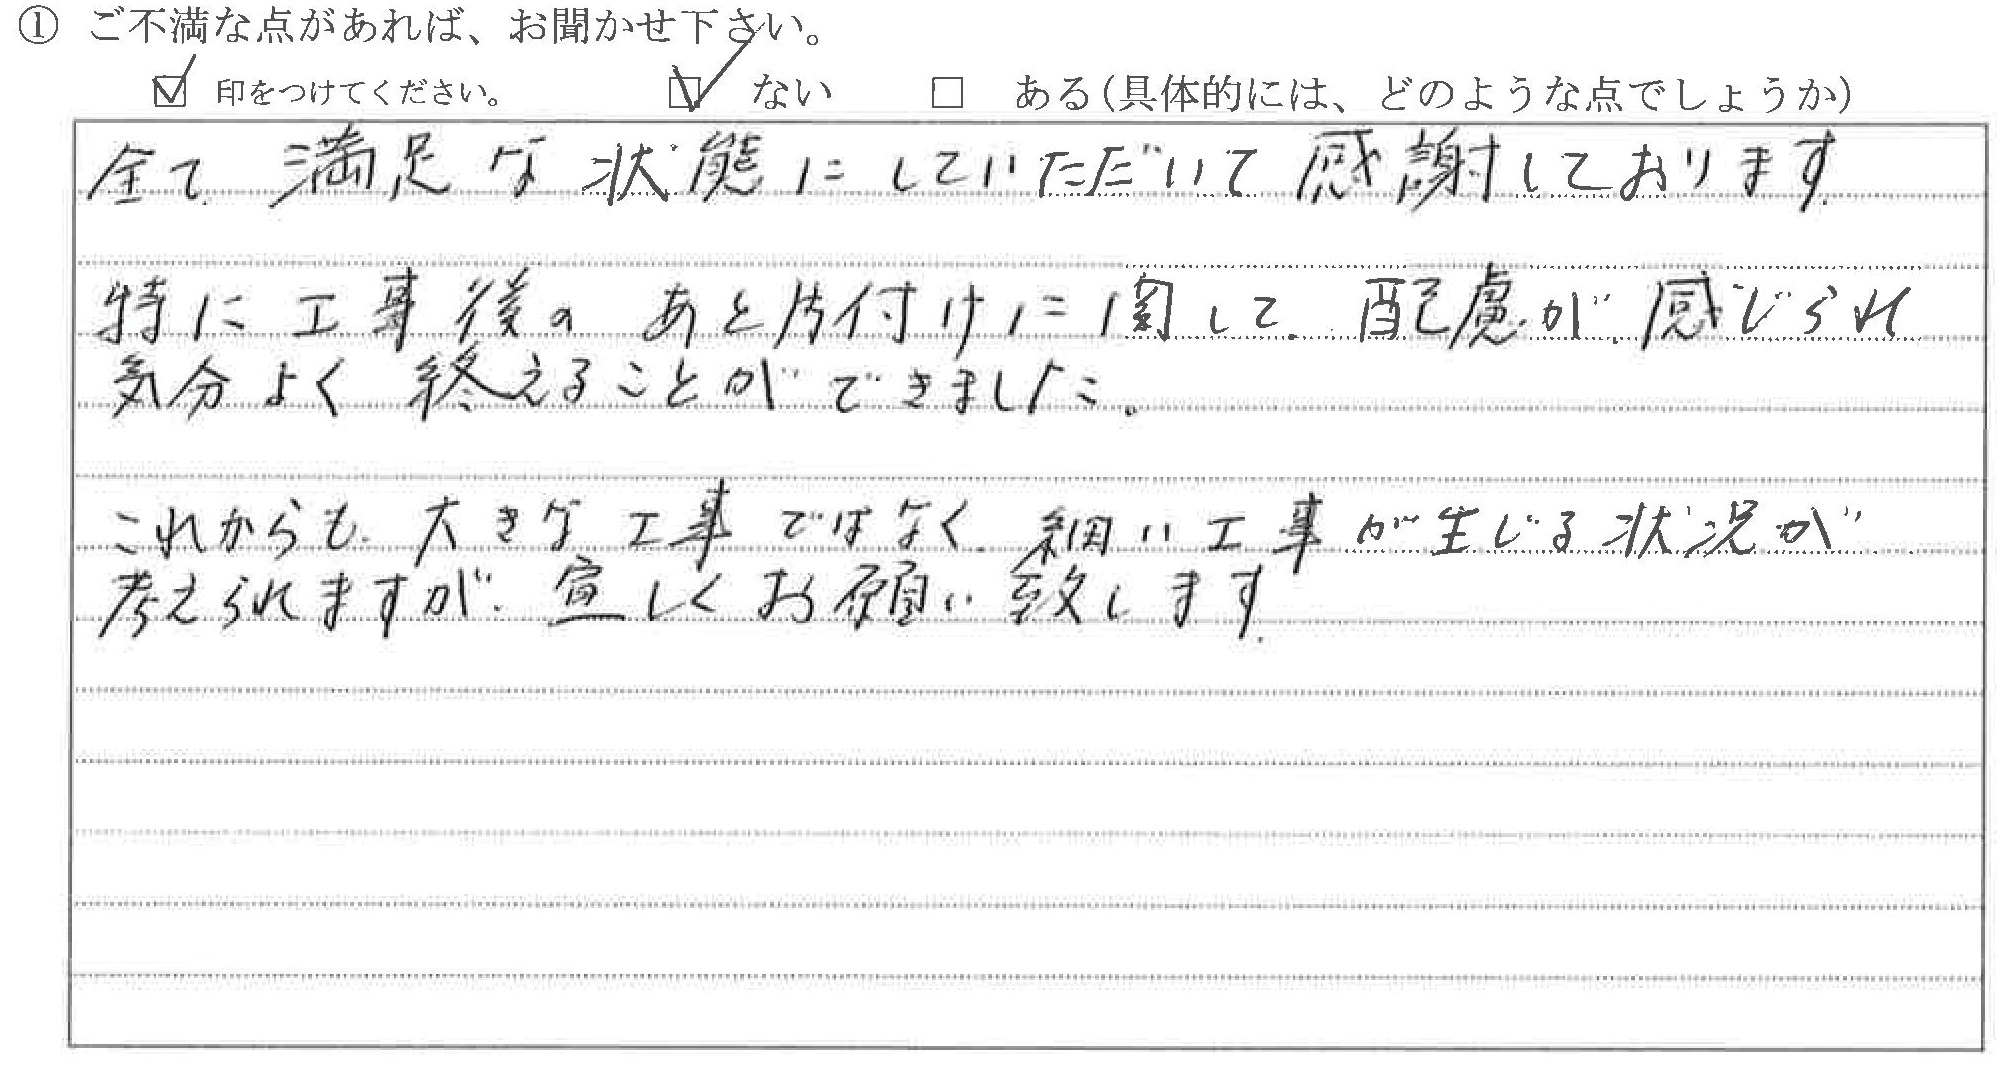 ① ご不満な点があれば、お聞かせ下さい。
☑ 印をつけてください。 ☑ ない □ ある(具体的には、どのような点でしょうか)
全て満足な状態にしていただいて感謝しております
特に工事後のあと片付けに関して、配慮が感じられ
気分よく終えることができました。
これからも、大きな工事ではなく、細い工事が生じる状況が
考えられますが、宜しくお願い致します